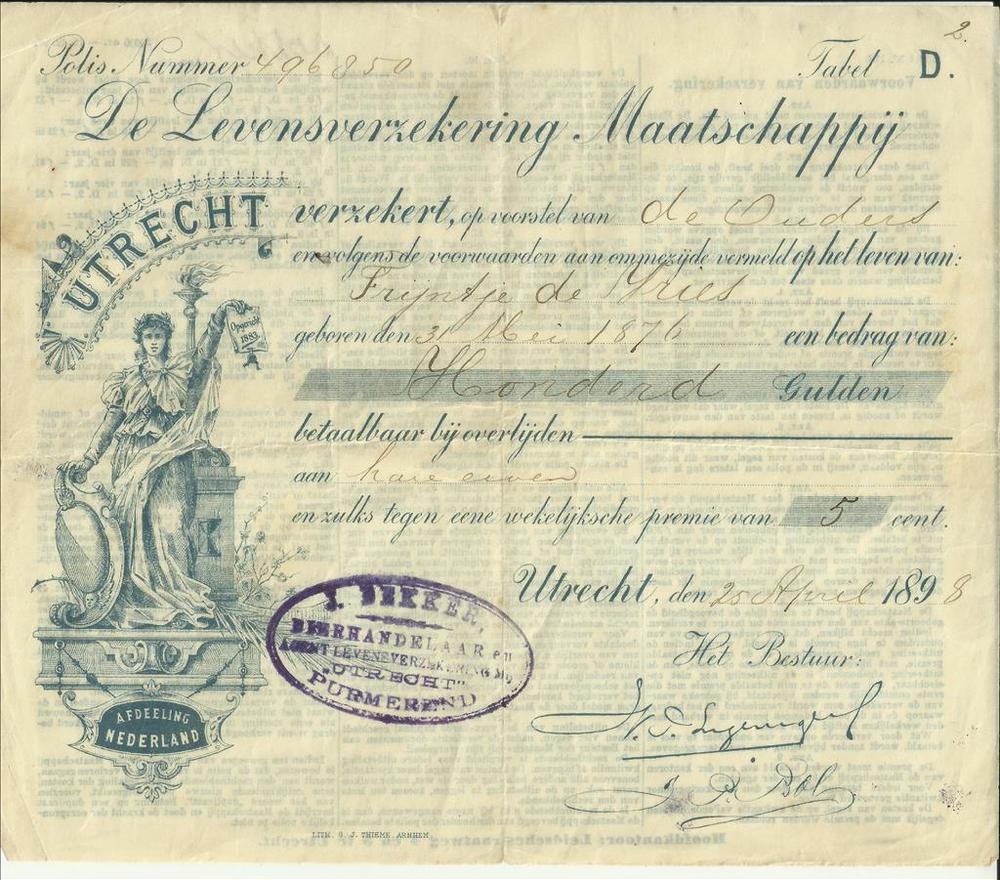 2.
Polis Nummer 496850 Tabel D.
De Levensverzekering Maatschappij
UTRECHT
Opgericht 1883
verzekert, op voorstel van de Ouders
en volgens de voorwaarden aan ommezijde vermeld op het leven van:
Trijntje de Vries
geboren den 31 Mei 1876 een bedrag van:
Honderd Gulden
betaalbaar bij overlijden
aan hare erven
en zulks tegen eene wekelijksche premie van 5 cent.
Utrecht, den 25 April 1898
J. DEKKER,
BIERHANDELAAR en
AGENT LEVENSVERZEKERING Mij
"UTRECHT"
PURMEREND
Het Bestuur:
J. R. Bol
AFDEELING
NEDERLAND
LITH. G. J. THIEME. ARNHEM.